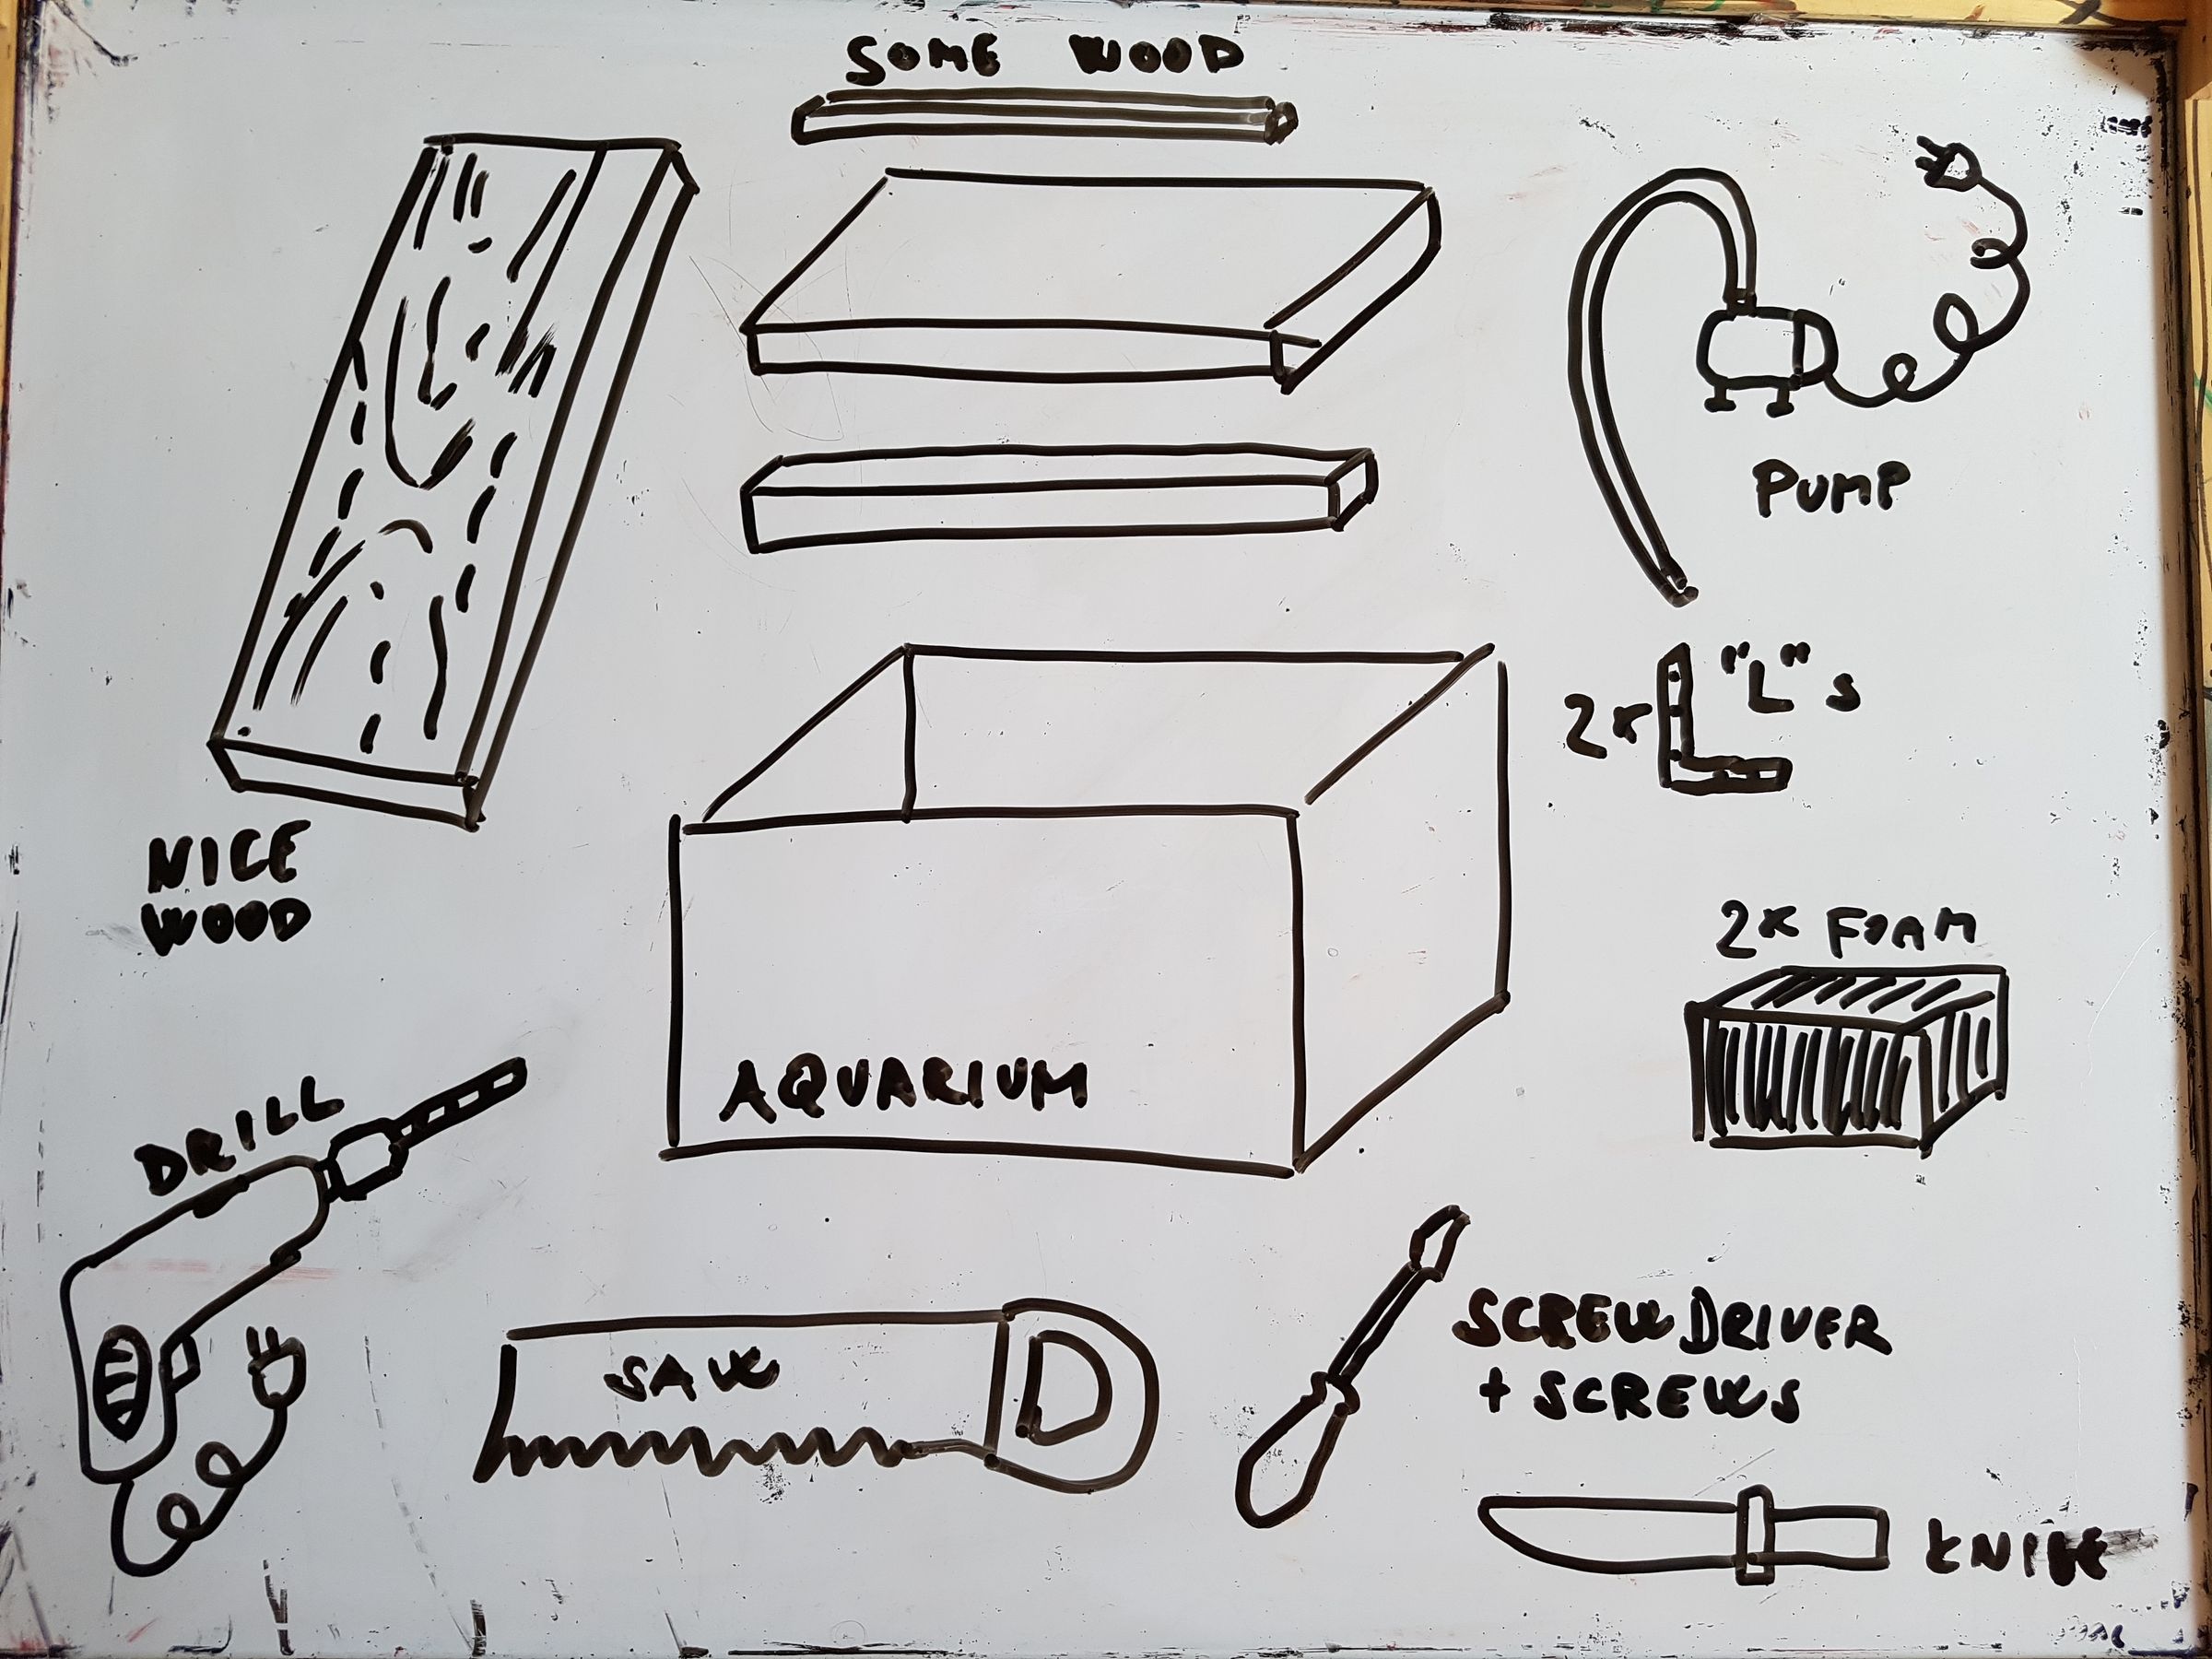 SOME WOOD
PUMP
2x "L"s
NICE
WOOD
2x FOAM
AQUARIUM
DRILL
SCREWDRIVER
+ SCREWS
SAW
KNIFE